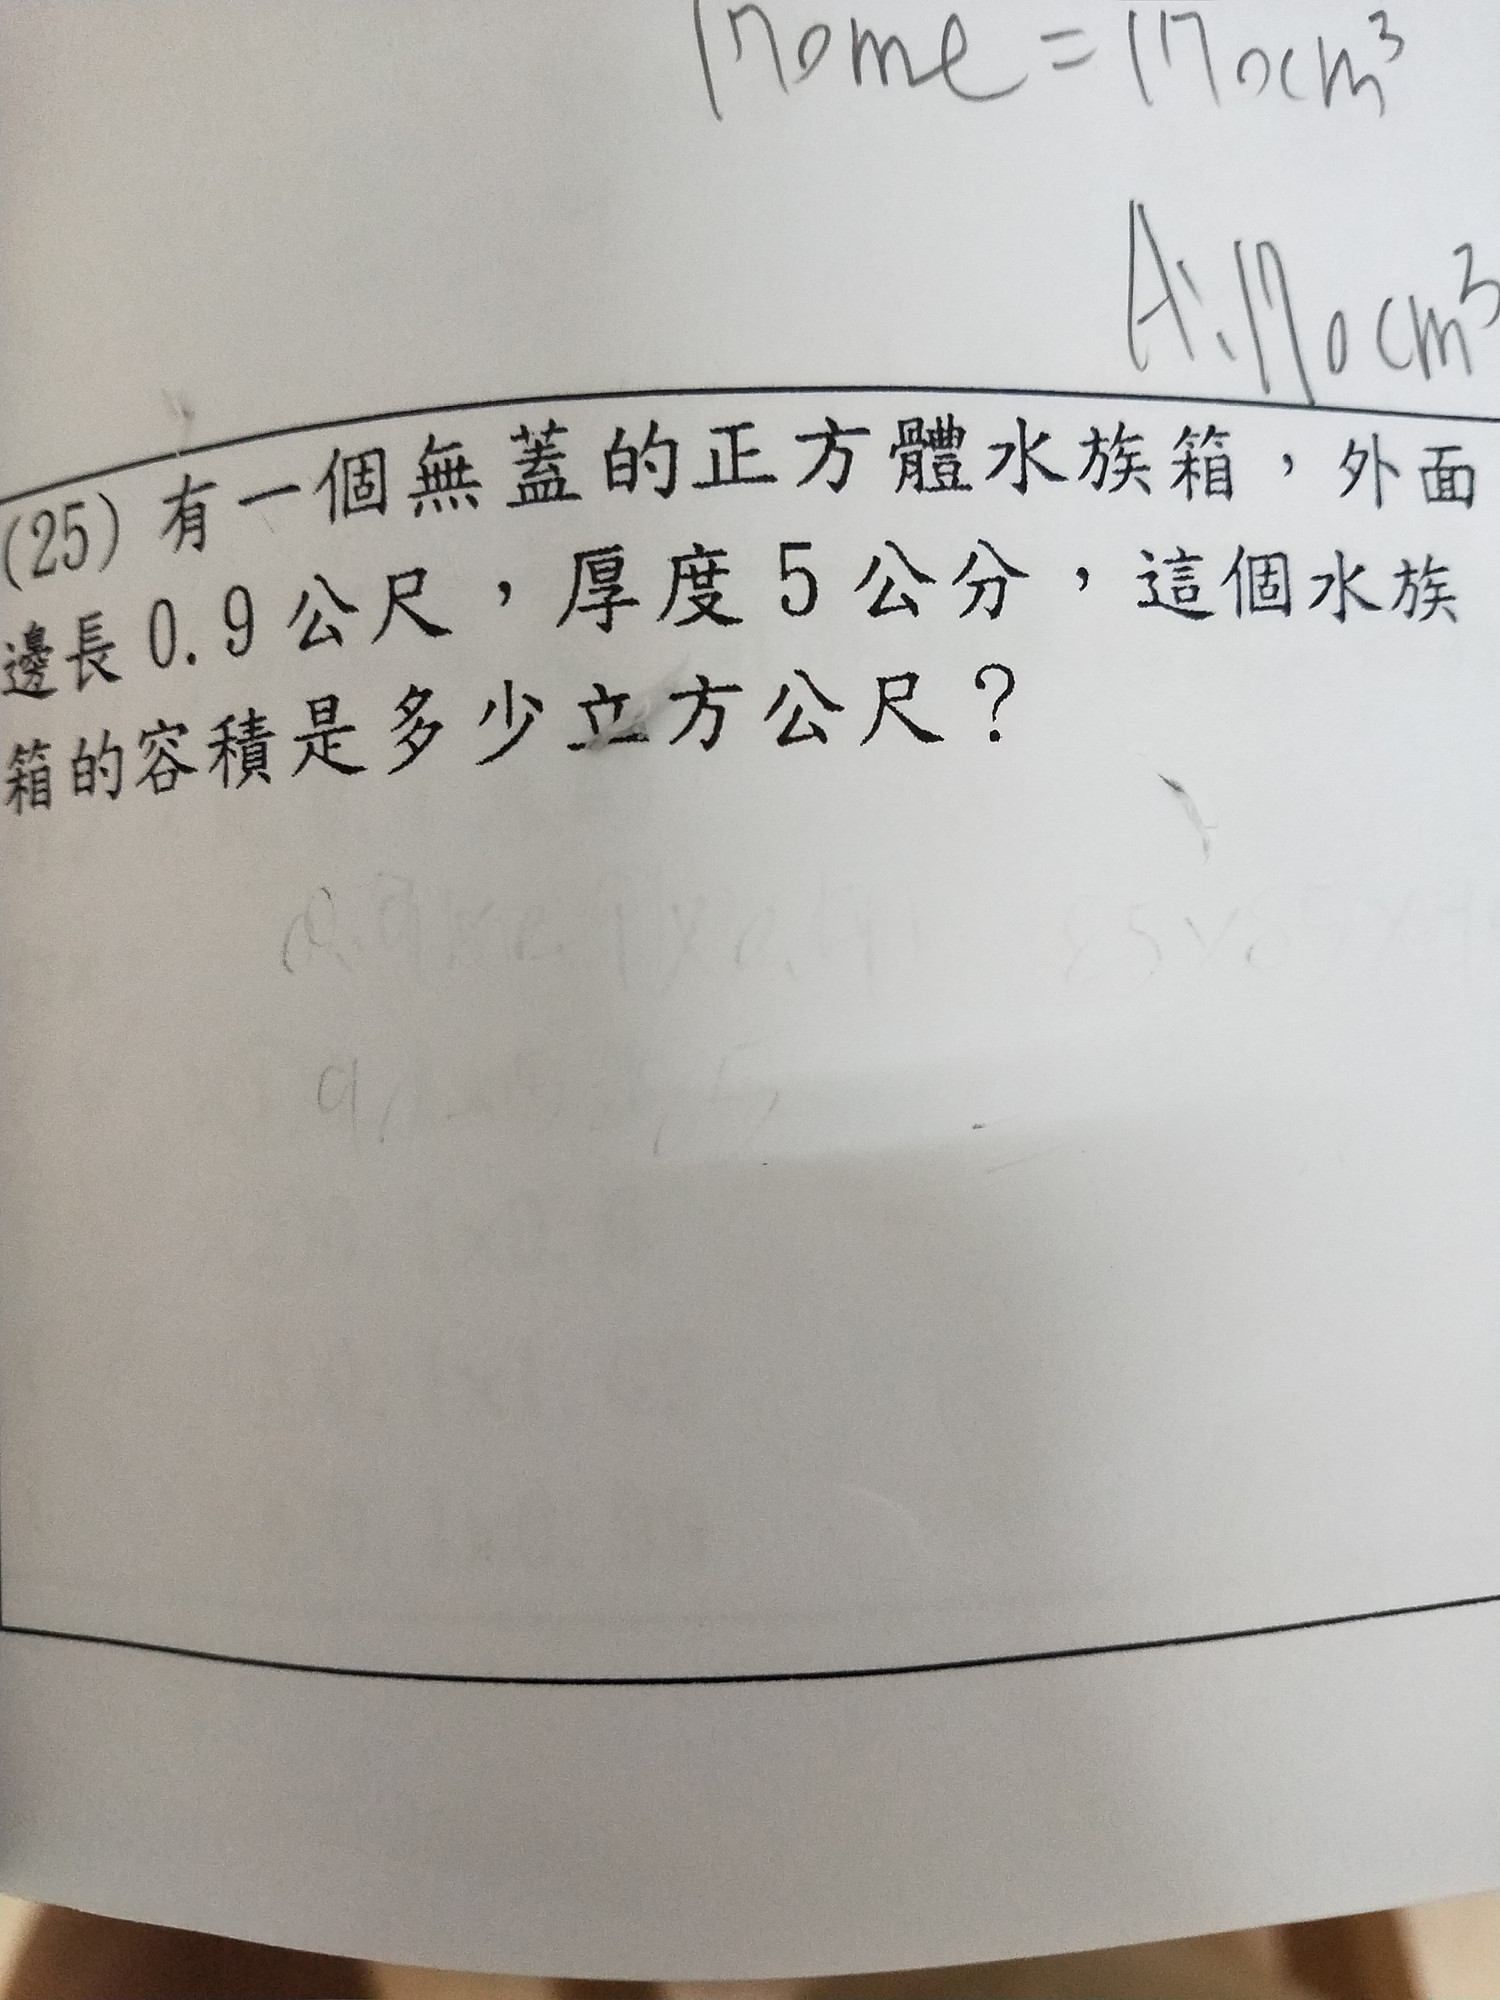 170ml = 170cm³
A:170cm³
(25) 有一個無蓋的正方體水族箱，外面
邊長 0.9 公尺，厚度 5 公分，這個水族
箱的容積是多少立方公尺？